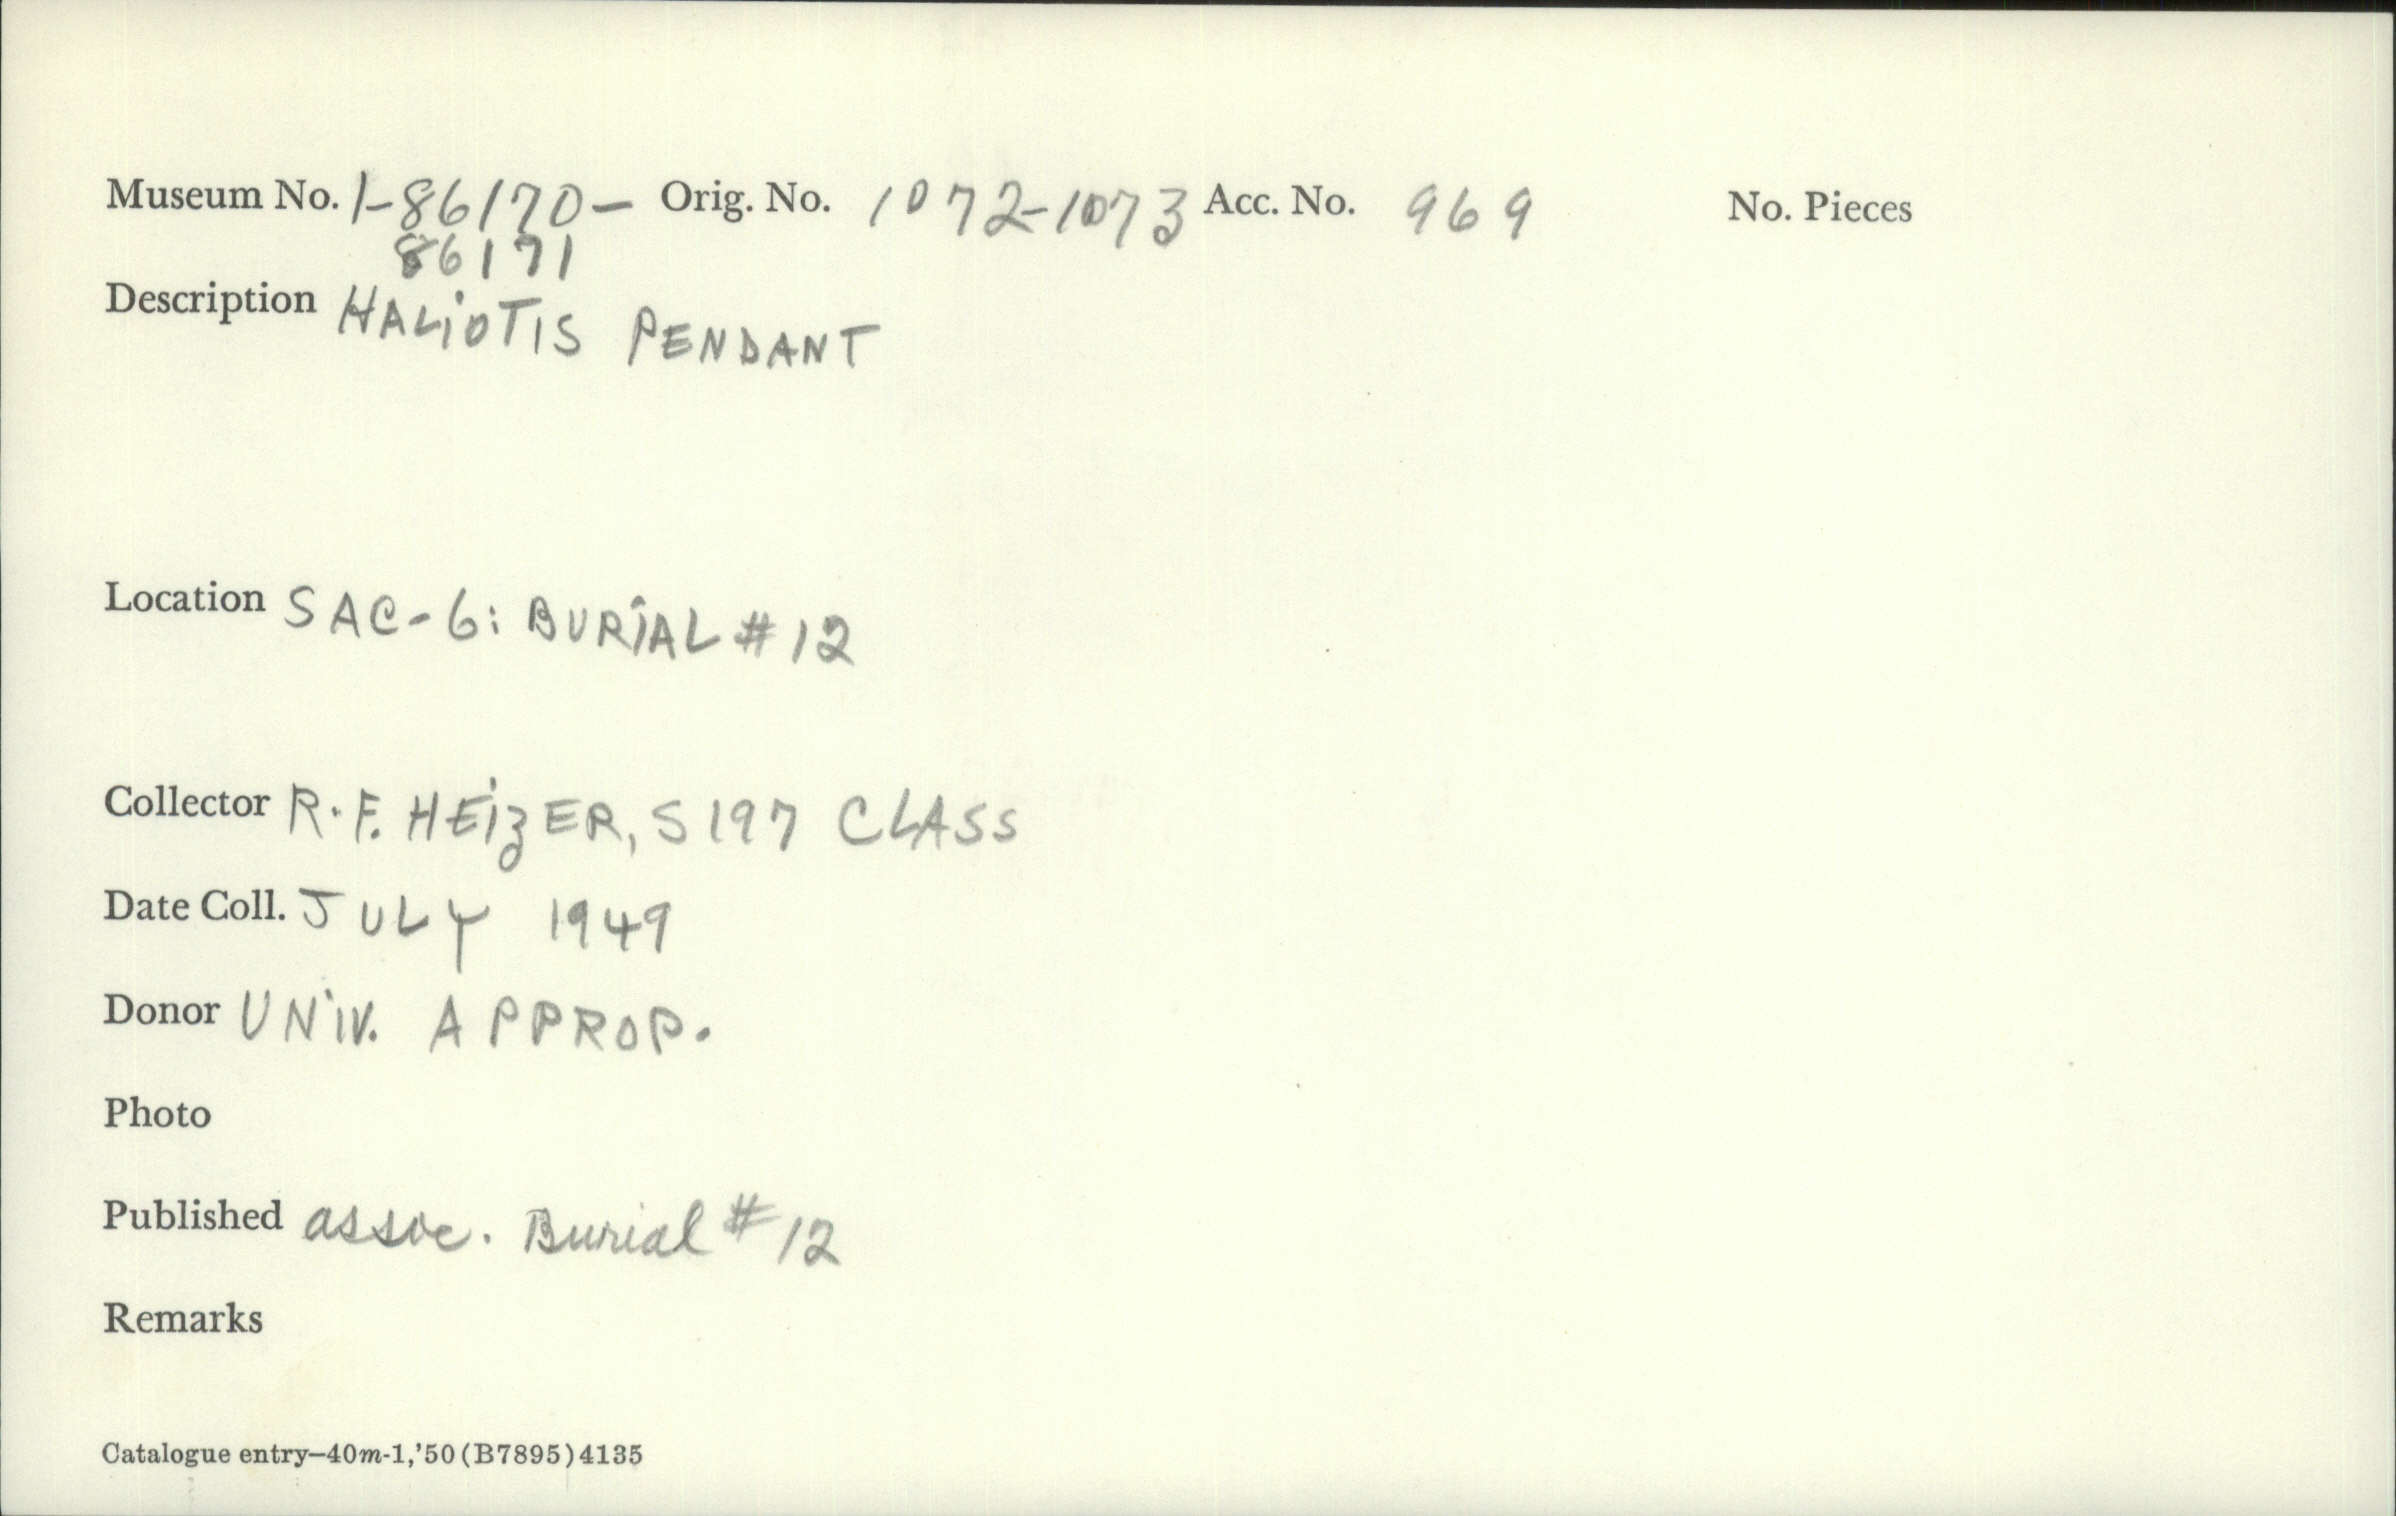 Museum No. 1-86170- Orig. No. 1072-1073 Acc. No. 969 No. Pieces
86171
Description HALIOTIS PENDANT
Location SAC-6: BURIAL #12
Collector R.F. HEIZER, S197 CLASS
Date Coll. JULY 1949
Donor UNIV. APPROP.
Photo
Published assoc. Burial #12
Remarks
Catalogue entry—40m-1,'50(B7895)4135